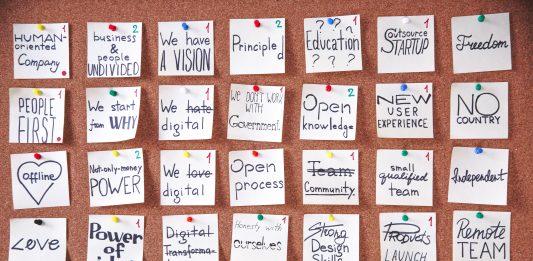 HUMAN-
oriented
Company
1
business
&
people
UNDIVIDED
2
We have
A VISION
1
Principled
2
? ? ?
Education
? ? ?
1
Outsource
STARTUP
1
Freedom
PEOPLE
FIRST.
1
We start
from WHY
1
We hate
digital
1
WE DON'T WORK
WITH
Government
1
Open
knowledge
2
NEW
USER
EXPERIENCE
1
NO
COUNTRY
offline
Not-only-money
POWER
2
We love
digital
1
Open
process
1
Team
Community
1
small
qualified
team
1
Independent
Love
Power
of
Digital
Transforma-
1
Honesty with
ourselves
1
Strong
Design
Skills
Products
LAUNCH
1
Remote
TEAM